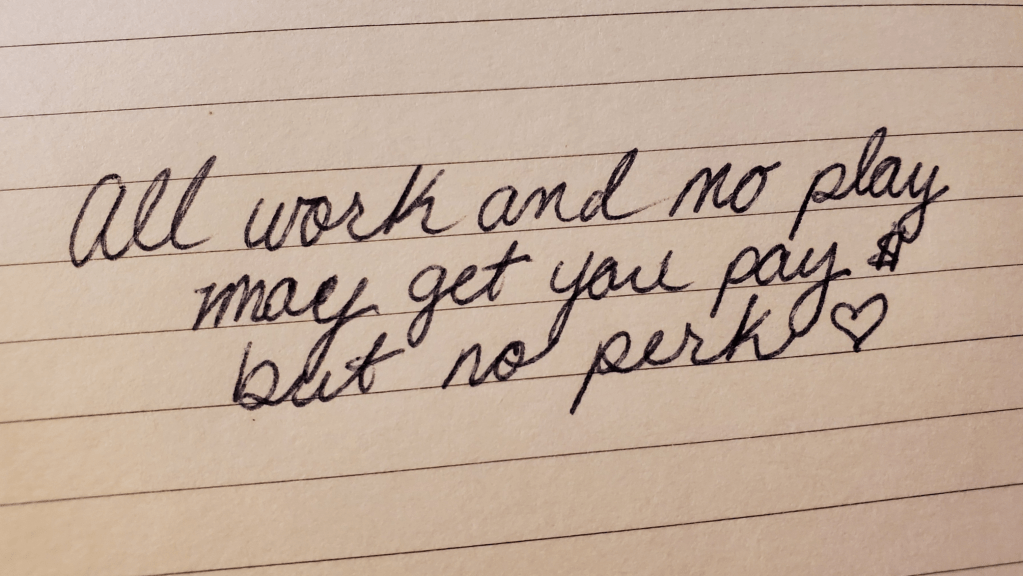 All work and no play
may get you pay $
but no perk ♡